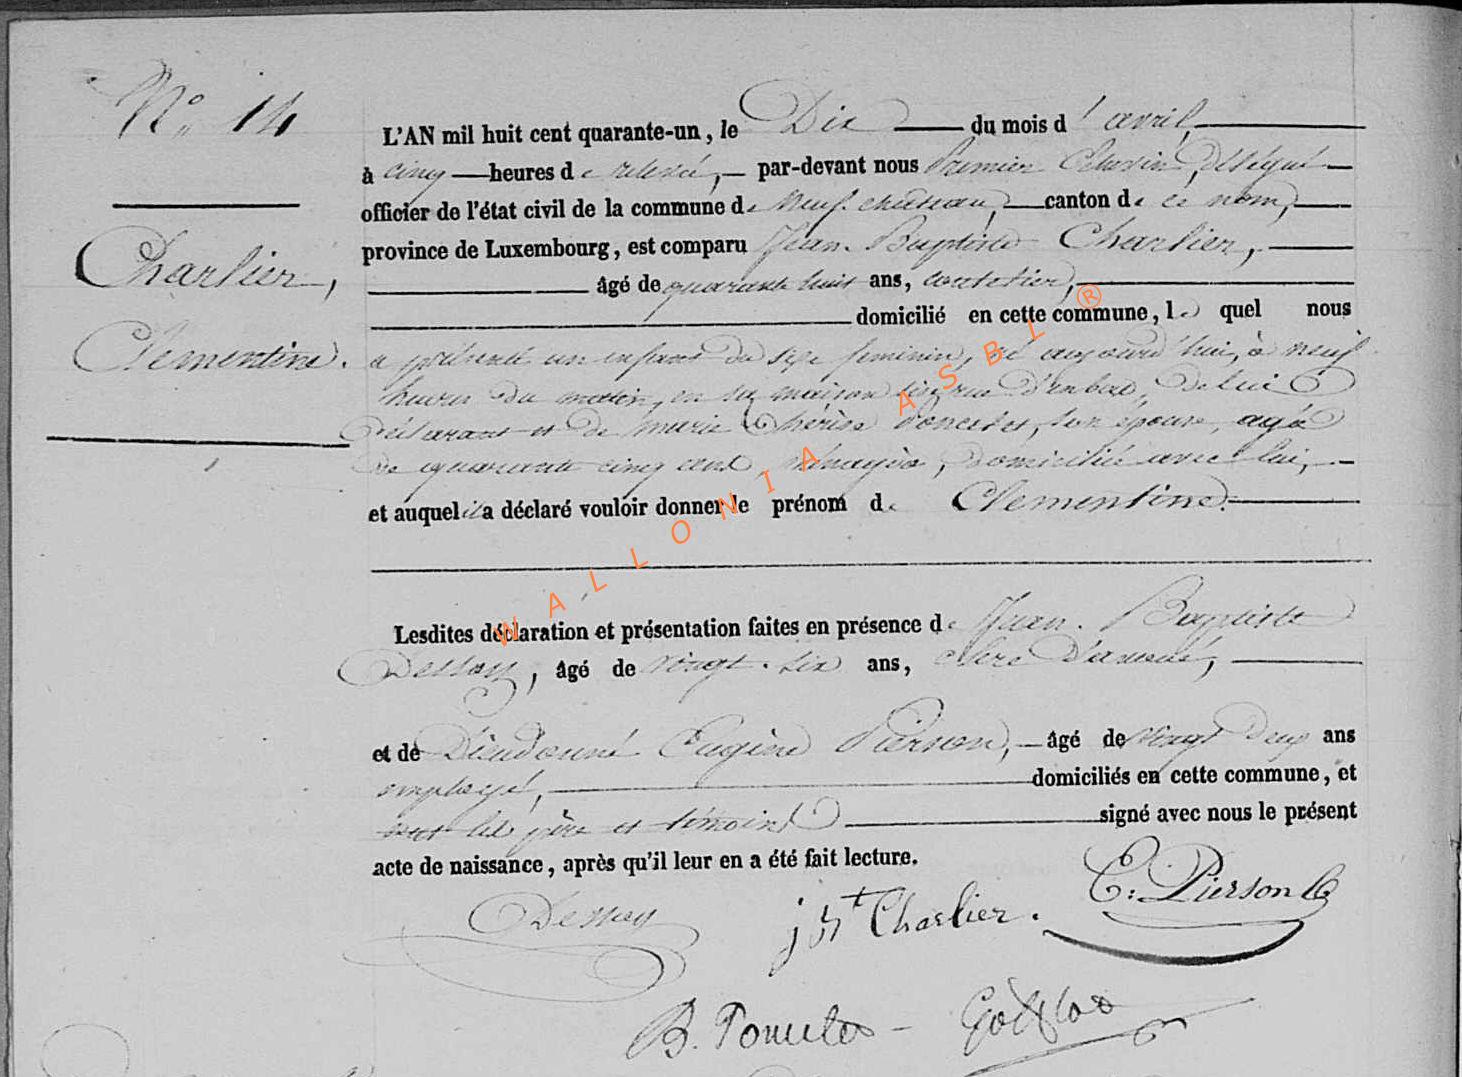 N° 14
L'AN mil huit cent quarante-un, le Dix du mois d'avril,
à cinq heures de relevé, par-devant nous Premier Echevin, délégué
officier de l'état civil de la commune de Neufchâteau, canton de ce nom,
province de Luxembourg, est comparu Jean-Baptiste Charlier,
Charlier,
âgé de quarante huit ans,
domicilié en cette commune, le quel nous
Clementine.
a présenté un enfant du sexe feminin, né aujourd'hui, à neuf
heures du matin, en sa maison sise rue d'enbas, de lui
Déclarant et de Marie Thérèse Poncelet, son épouse, agée
de quarante cinq ans, ménagère, domiciliée avec lui,
et auquel il a déclaré vouloir donner le prénom de Clementine.
Lesdites déclaration et présentation faites en présence de Jean-Baptiste
Dessoy, âgé de vingt-six ans, clerc d'avoué,
et de Dieudonné Eugène Pierson, âgé de vingt deux ans
employé, domiciliés en cette commune, et
ont les père et témoins signé avec nous le présent
acte de naissance, après qu'il leur en a été fait lecture.
Dessoy
j Bte Charlier.
E: Pierson
B. Poncelet
WALLONIA ASBL ®